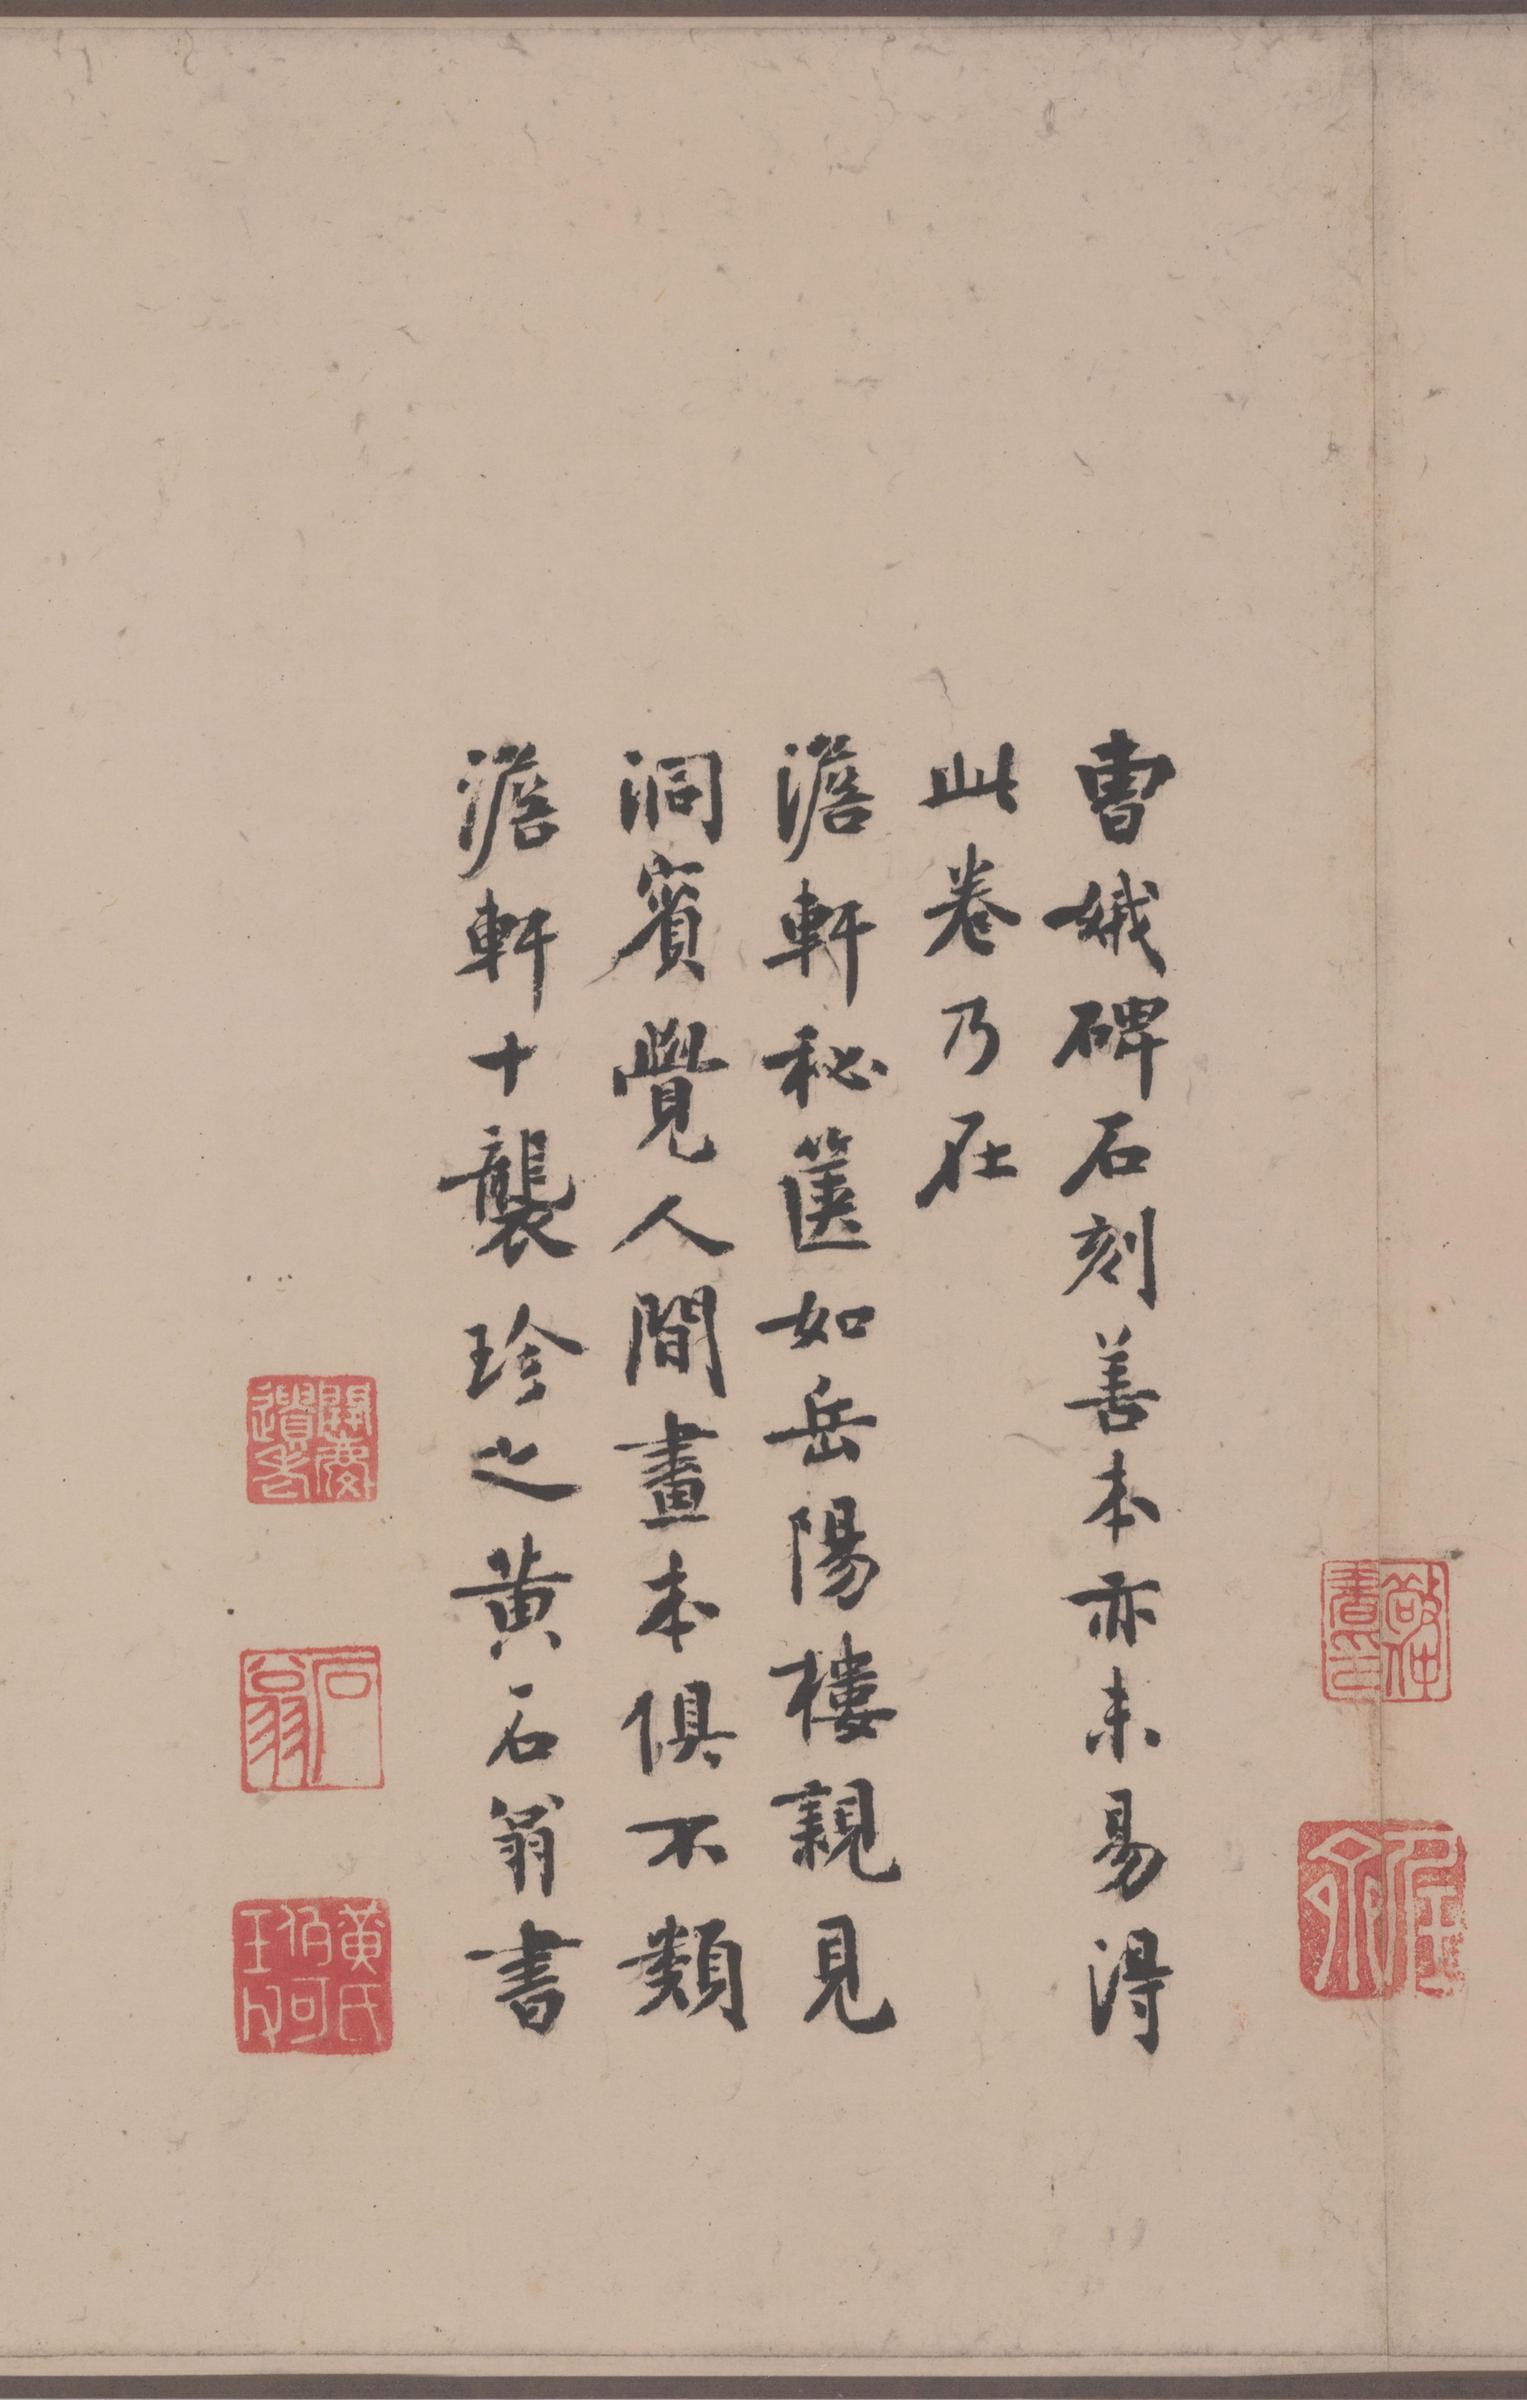 曹娥碑石刻善本亦未易得
此卷乃在
澹軒秘篋如岳陽樓親見
洞賓覺人間畫本俱不類
澹軒十襲珍之黃石翁書
石翁